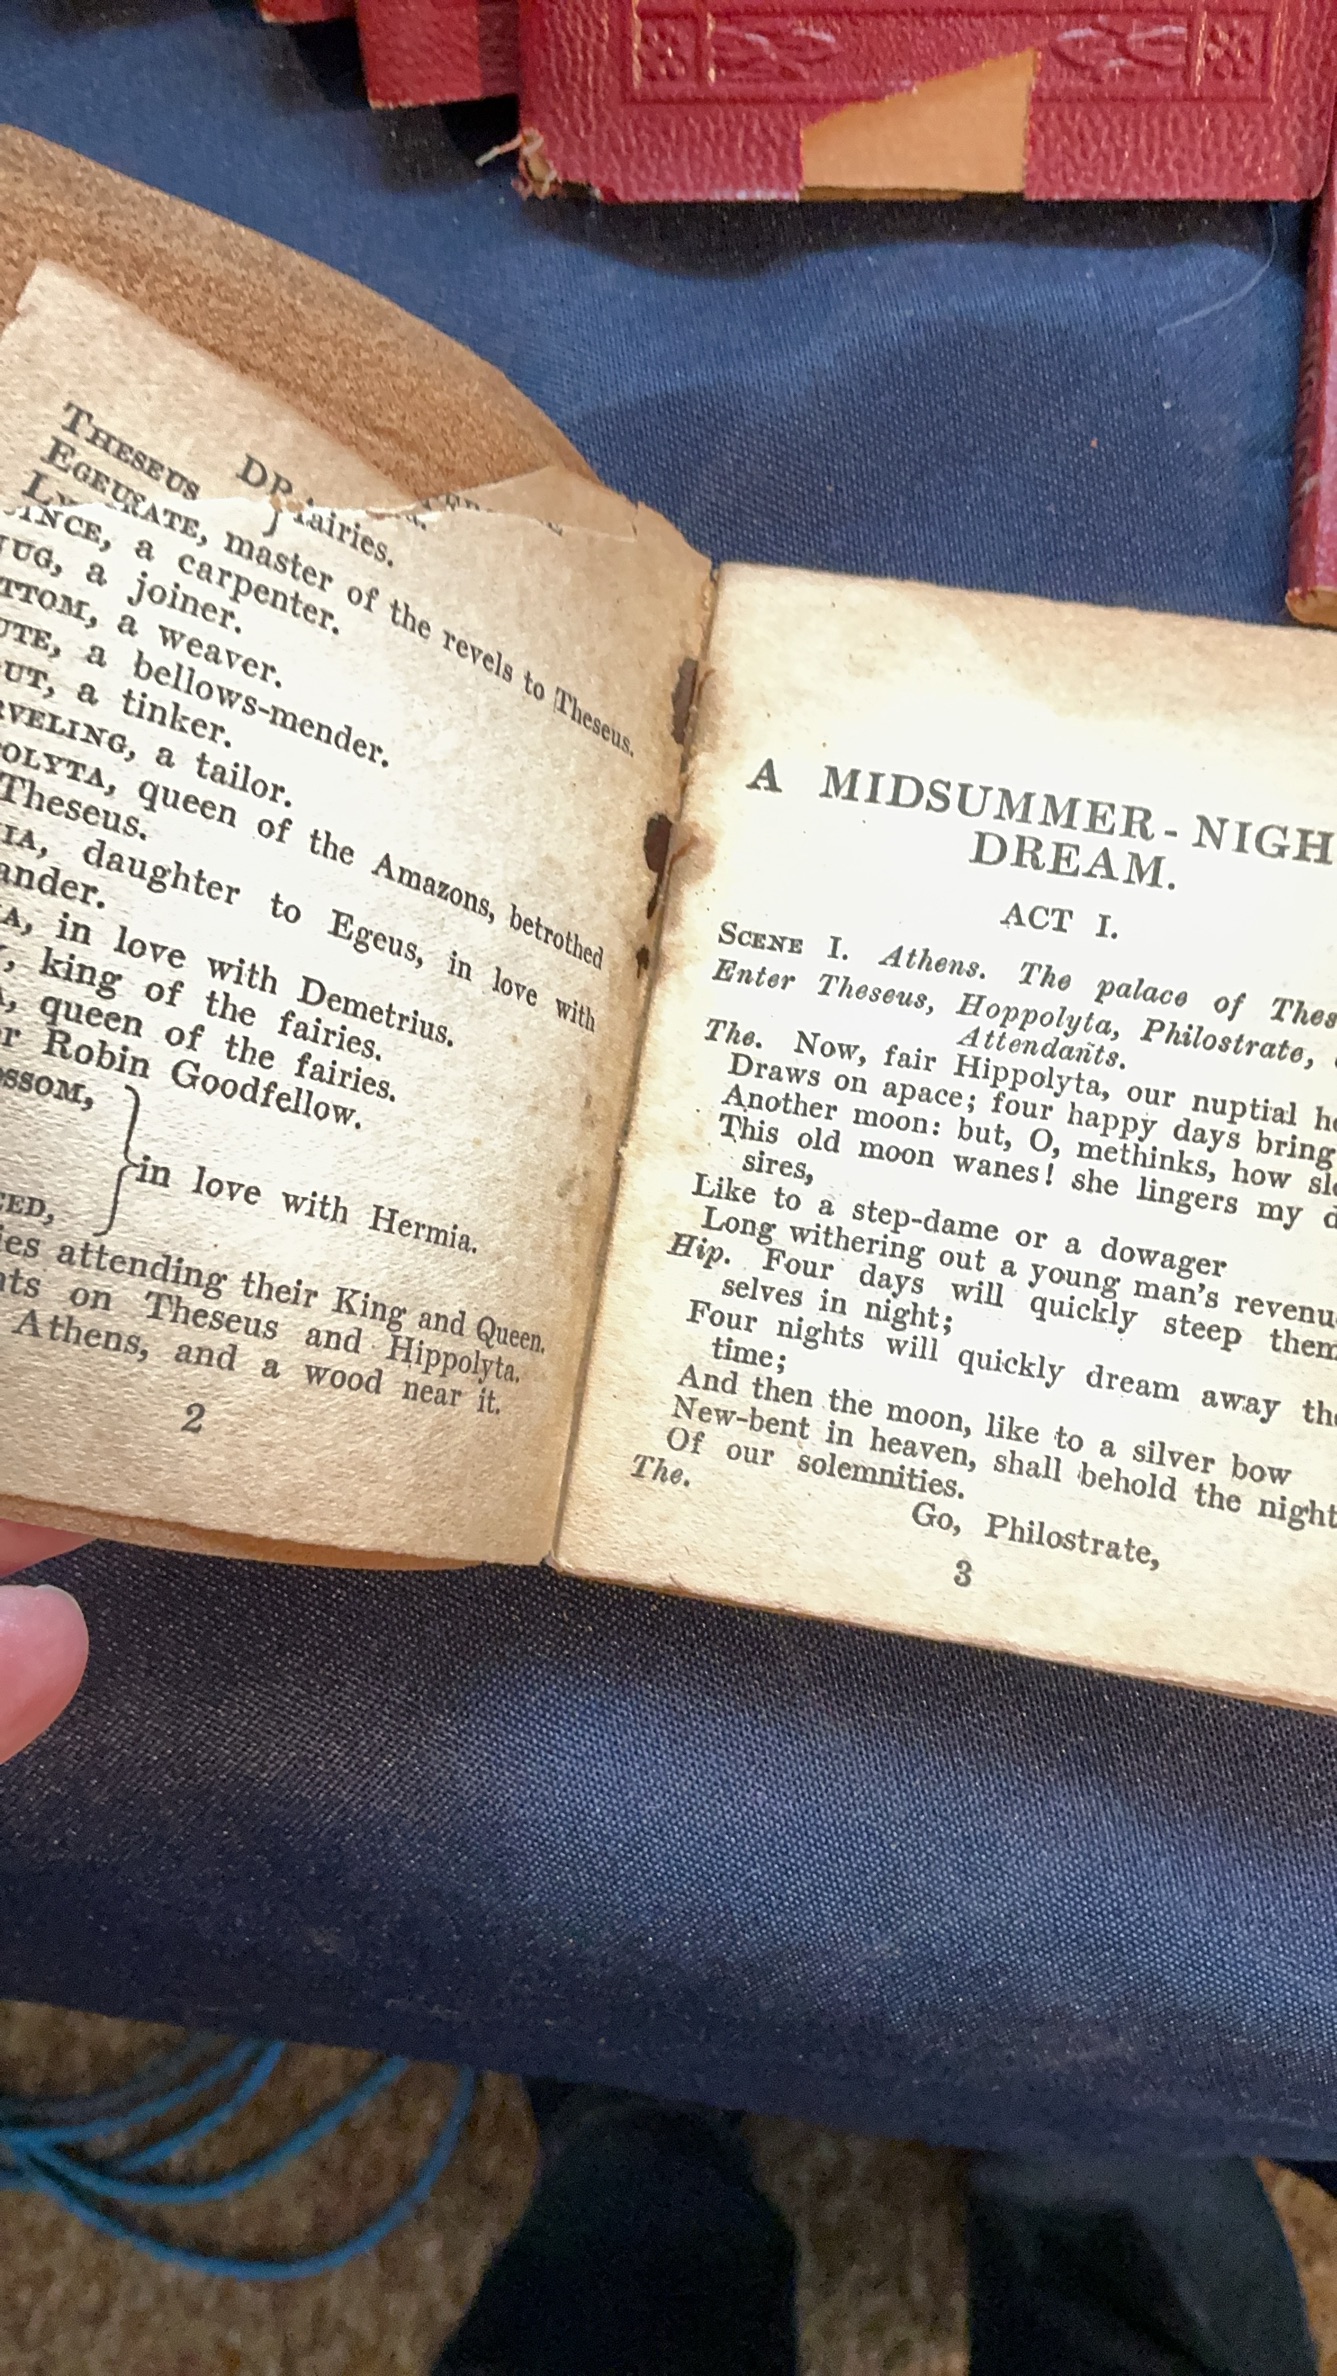 THESEUS
EGEU
RATE, master of the revels to Theseus.
fairies.
INCE, a carpenter.
UG, a joiner.
TTOM, a weaver.
UTE, a bellows-mender.
OUT, a tinker.
RVELING, a tailor.
OLYTA, queen of the Amazons, betrothed
Theseus.
IA, daughter to Egeus, in love with
ander.
A, in love with Demetrius.
, king of the fairies.
A, queen of the fairies.
or Robin Goodfellow.
OSSOM,
in love with Hermia.
EED,
ies attending their King and Queen.
nts on Theseus and Hippolyta.
Athens, and a wood near it.
2
A MIDSUMMER-NIGH
DREAM.
ACT I.
SCENE I. Athens. The palace of Thes
Enter Theseus, Hoppolyta, Philostrate,
Attendants.
The. Now, fair Hippolyta, our nuptial ho
Draws on apace; four happy days bring
Another moon: but, O, methinks, how slo
This old moon wanes! she lingers my d
sires,
Like to a step-dame or a dowager
Long withering out a young man's revenu
Hip. Four days will quickly steep them
selves in night;
Four nights will quickly dream away the
time;
And then the moon, like to a silver bow
New-bent in heaven, shall behold the night
Of our solemnities.
The.
Go, Philostrate,
3